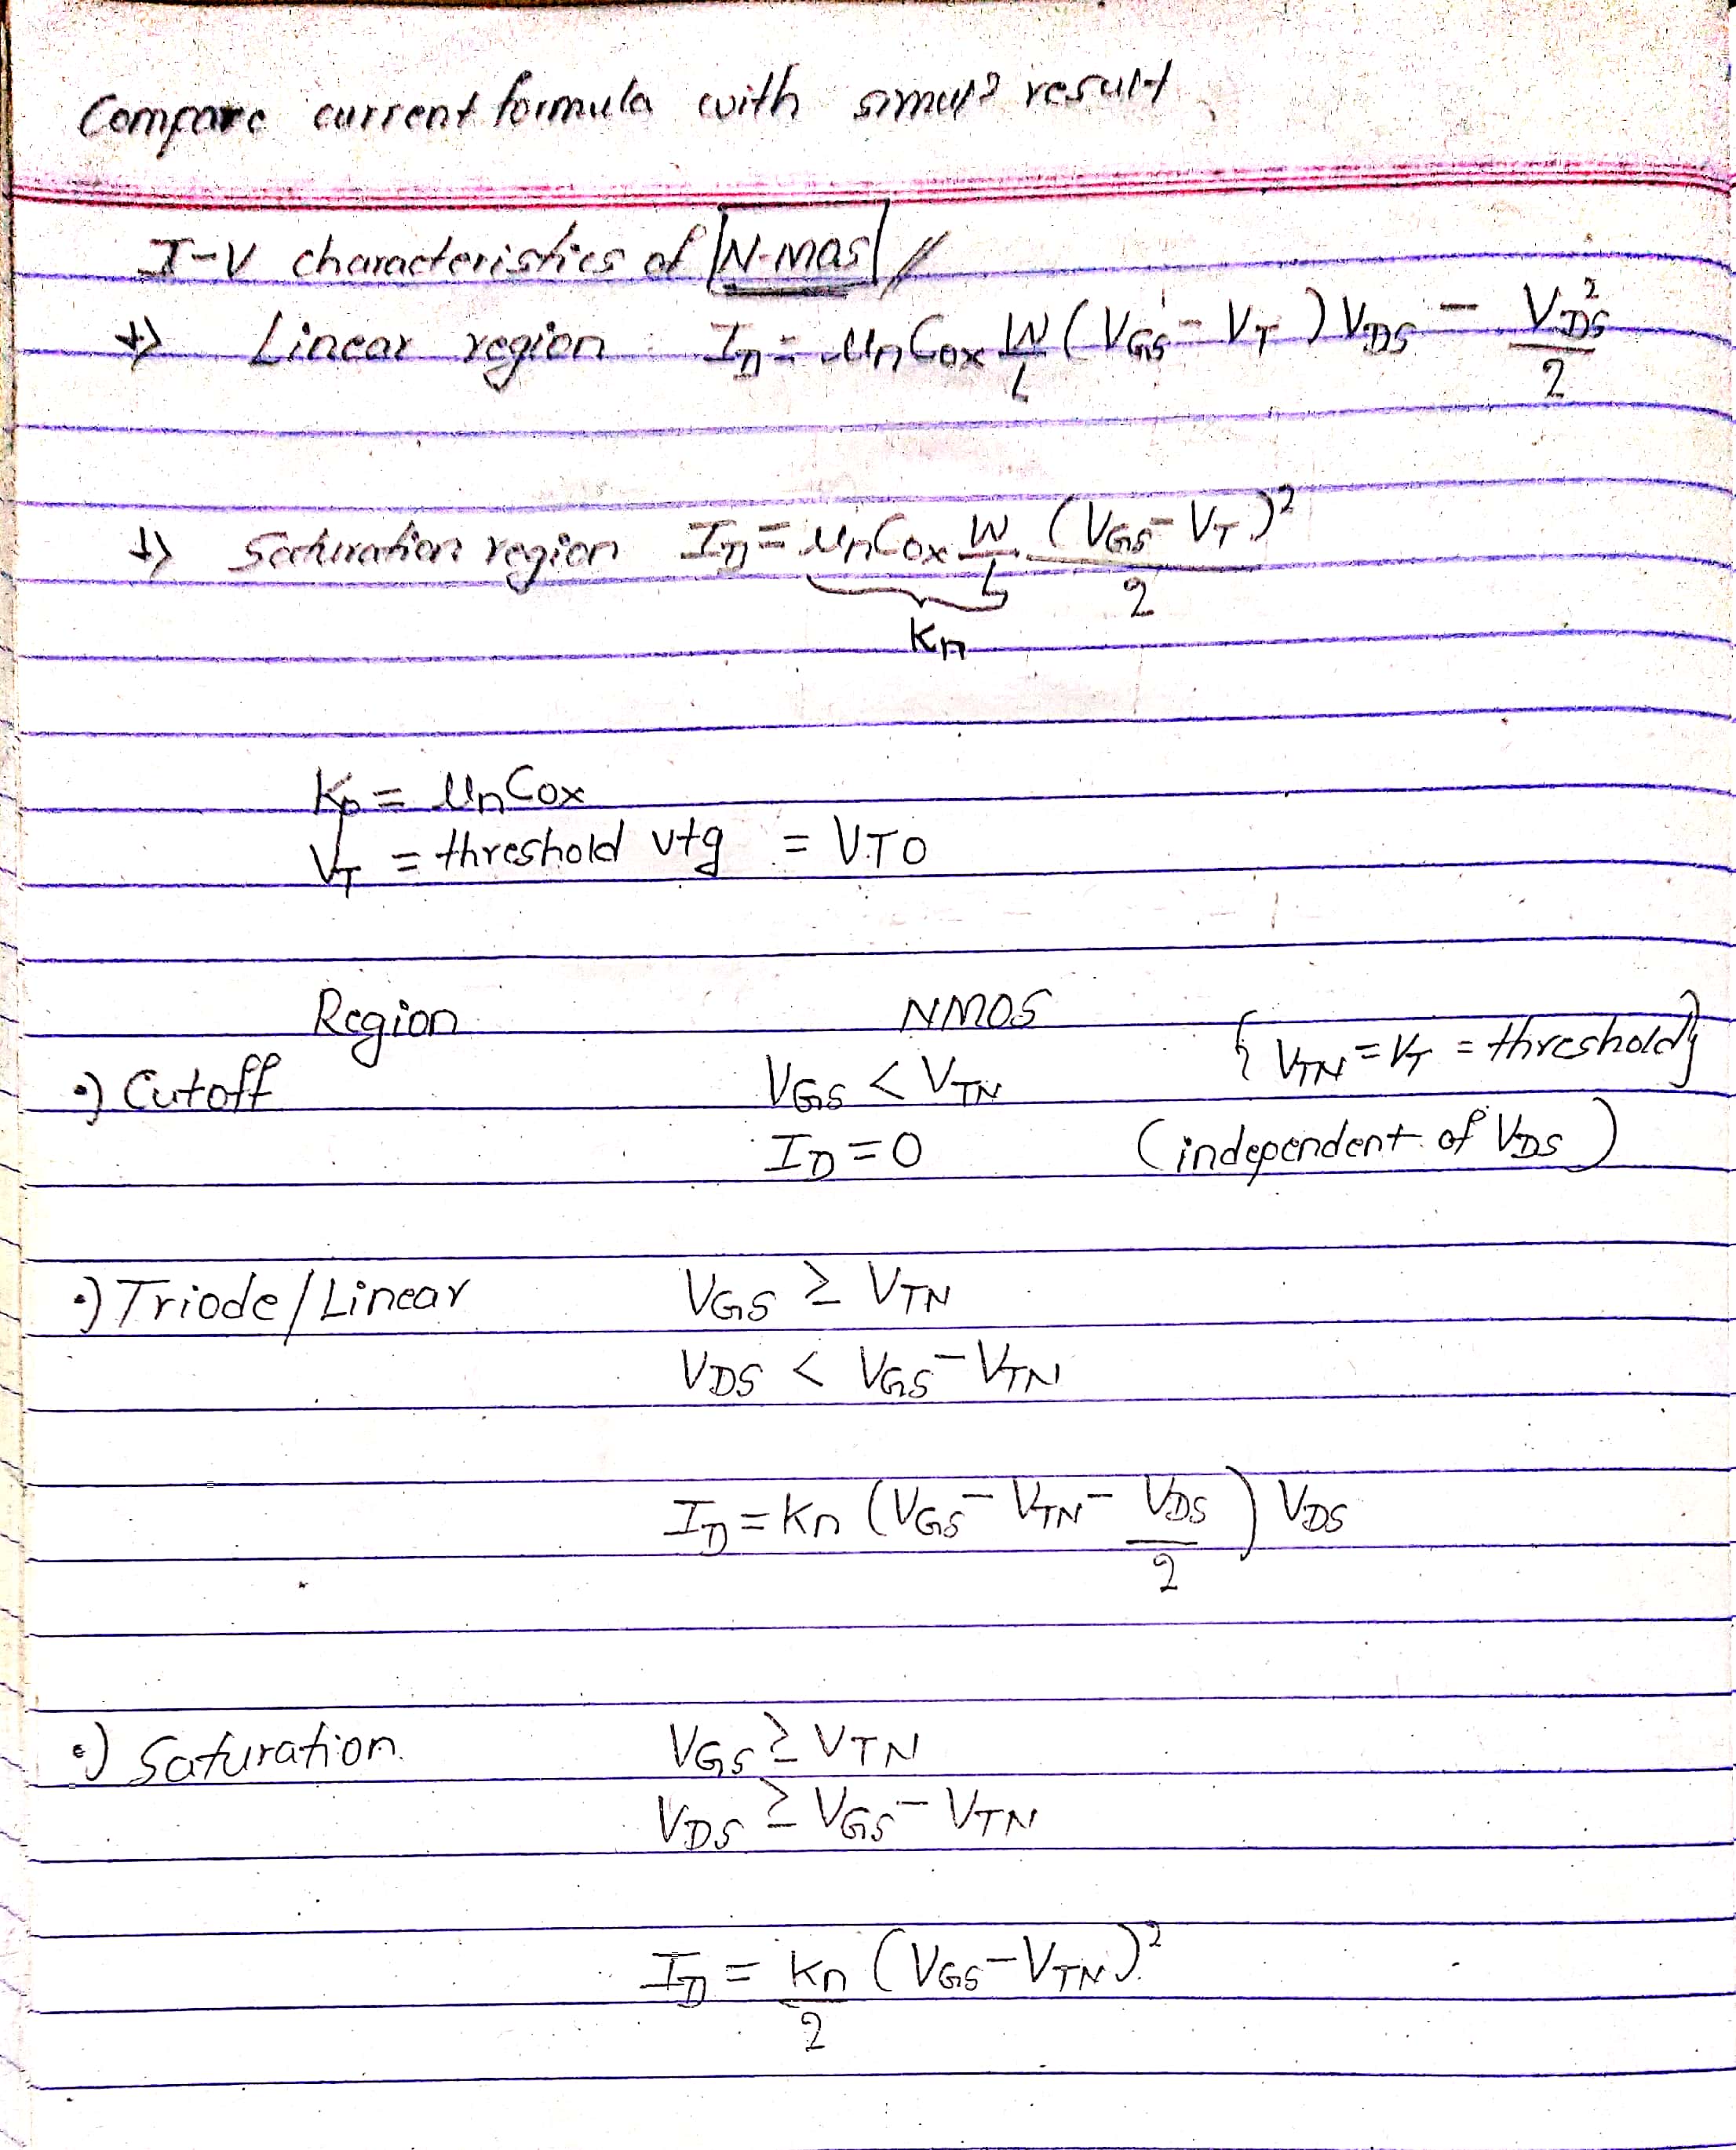 Compare current formula with simulⁿ result
I-V characteristics of N-mos //
→ Linear region : I_D = μnCox W/L (VGS - VT) VDS - VDS²/2
→ Saturation region I_D = μnCox W/L (VGS - VT)²/2
Kn
Kp = μnCox
VT = threshold vtg = VTO
Region NMOS { VTN = VT = threshold}
•) Cutoff VGS < VTN
ID = 0 (independent of VDS)
•) Triode/Linear VGS ≥ VTN
VDS < VGS - VTN
ID = Kn (VGS - VTN - VDS/2) VDS
•) Saturation. VGS ≥ VTN
VDS ≥ VGS - VTN
ID = Kn/2 (VGS - VTN)²